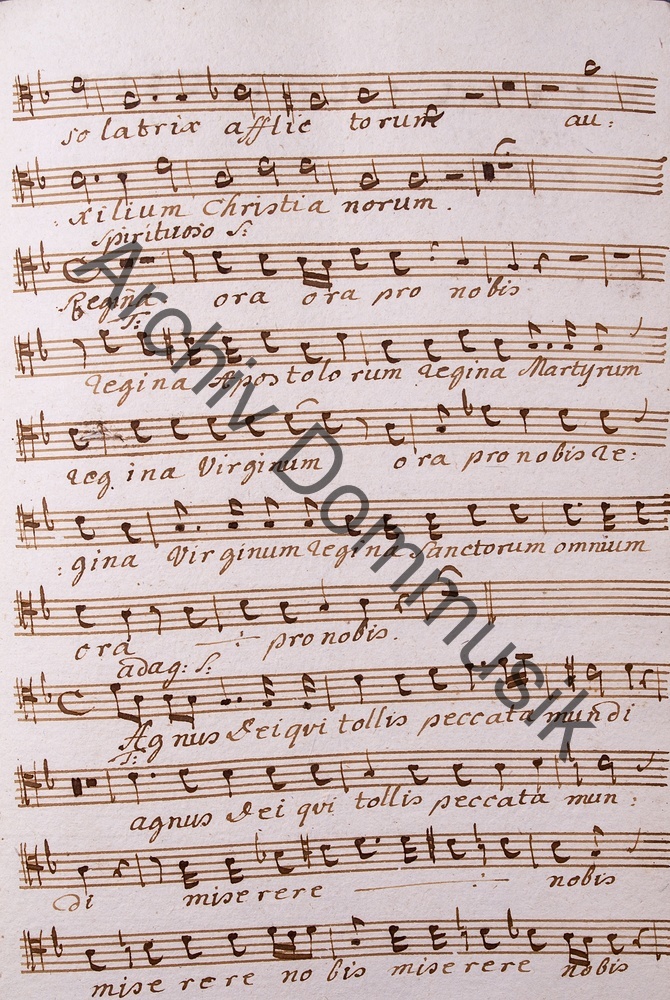 so latrix afflic torum au:
xilium Christia norum.
Spirituoso S:
Regina ora ora pro nobis
T:
regina Apostolo rum regina Martyrum
reg ina Virginum ora pro nobis re:
: gina Vir ginum regina Sanctorum omnium
ora pro nobis.
adag: S:
Ag nus Dei qui tollis peccata mundi
T:
agnus Dei qui tollis peccata mun:
di mise rere nobis
mise re re no bis mise rere nobis
Archiv Dommusik